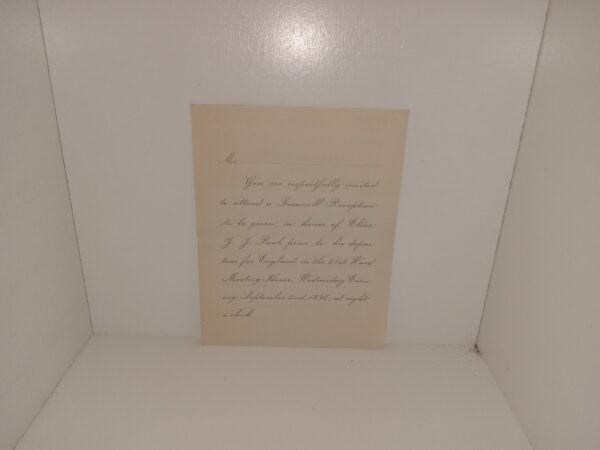 Mr.
You are respectfully invited
to attend a Farewell Reception
to be given in honor of Elder
J. J. Paul, prior to his depar-
ture for England, in the 21st Ward
Meeting House, Wednesday Even-
ing, September 2nd, 1896, at eight
o'clock.